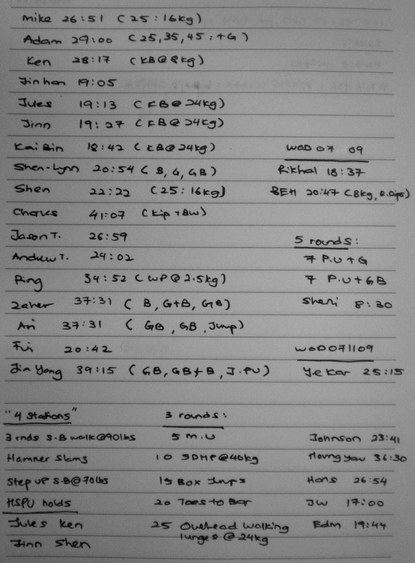 Mike 26:51 (25:16kg)
Adam 29:00 (25,35,45; +G)
Ken 28:17 (KB@8kg)
Jinhan 19:05
Jules 19:13 (KB@24kg)
Jinn 19:27 (KB@24kg)
Kai Bin 18:42 (KB@24kg)
WOD 07 09
Shen-Lynn 20:54 (B, G, GB)
Rikhal 18:37
Shen 22:22 (25:16kg)
BEH 20:47 (8kg, R.Dips)
Charles 41:07 (Kip+BW)
Jason T. 26:59
5 rounds:
Andrew T. 24:02
7 P.U+G
Ping 34:52 (WP@2.5kg)
7 P.U+GB
Zaher 37:31 (B, G+B, GB)
Sheri 8:30
Ari 37:31 (GB, GB, Jump)
Fui 20:42
WOD071109
Jin Yang 39:15 (GB, GB+B, J.PU)
Ye Kai 25:15
"4 Stations"
3 rounds:
3 rnds S.B walk@90lbs
5 M.U
Johnson 23:41
Hammer Slams
10 SDHP@40kg
Horng You 36:30
Step up S.B@70lbs
15 Box Jumps
Hans 26:54
HSPU holds
20 Toes to Bar
JW 17:00
Jules Ken
25 Overhead walking
Edm 19:44
Jinn Shen
lunges @ 24kg